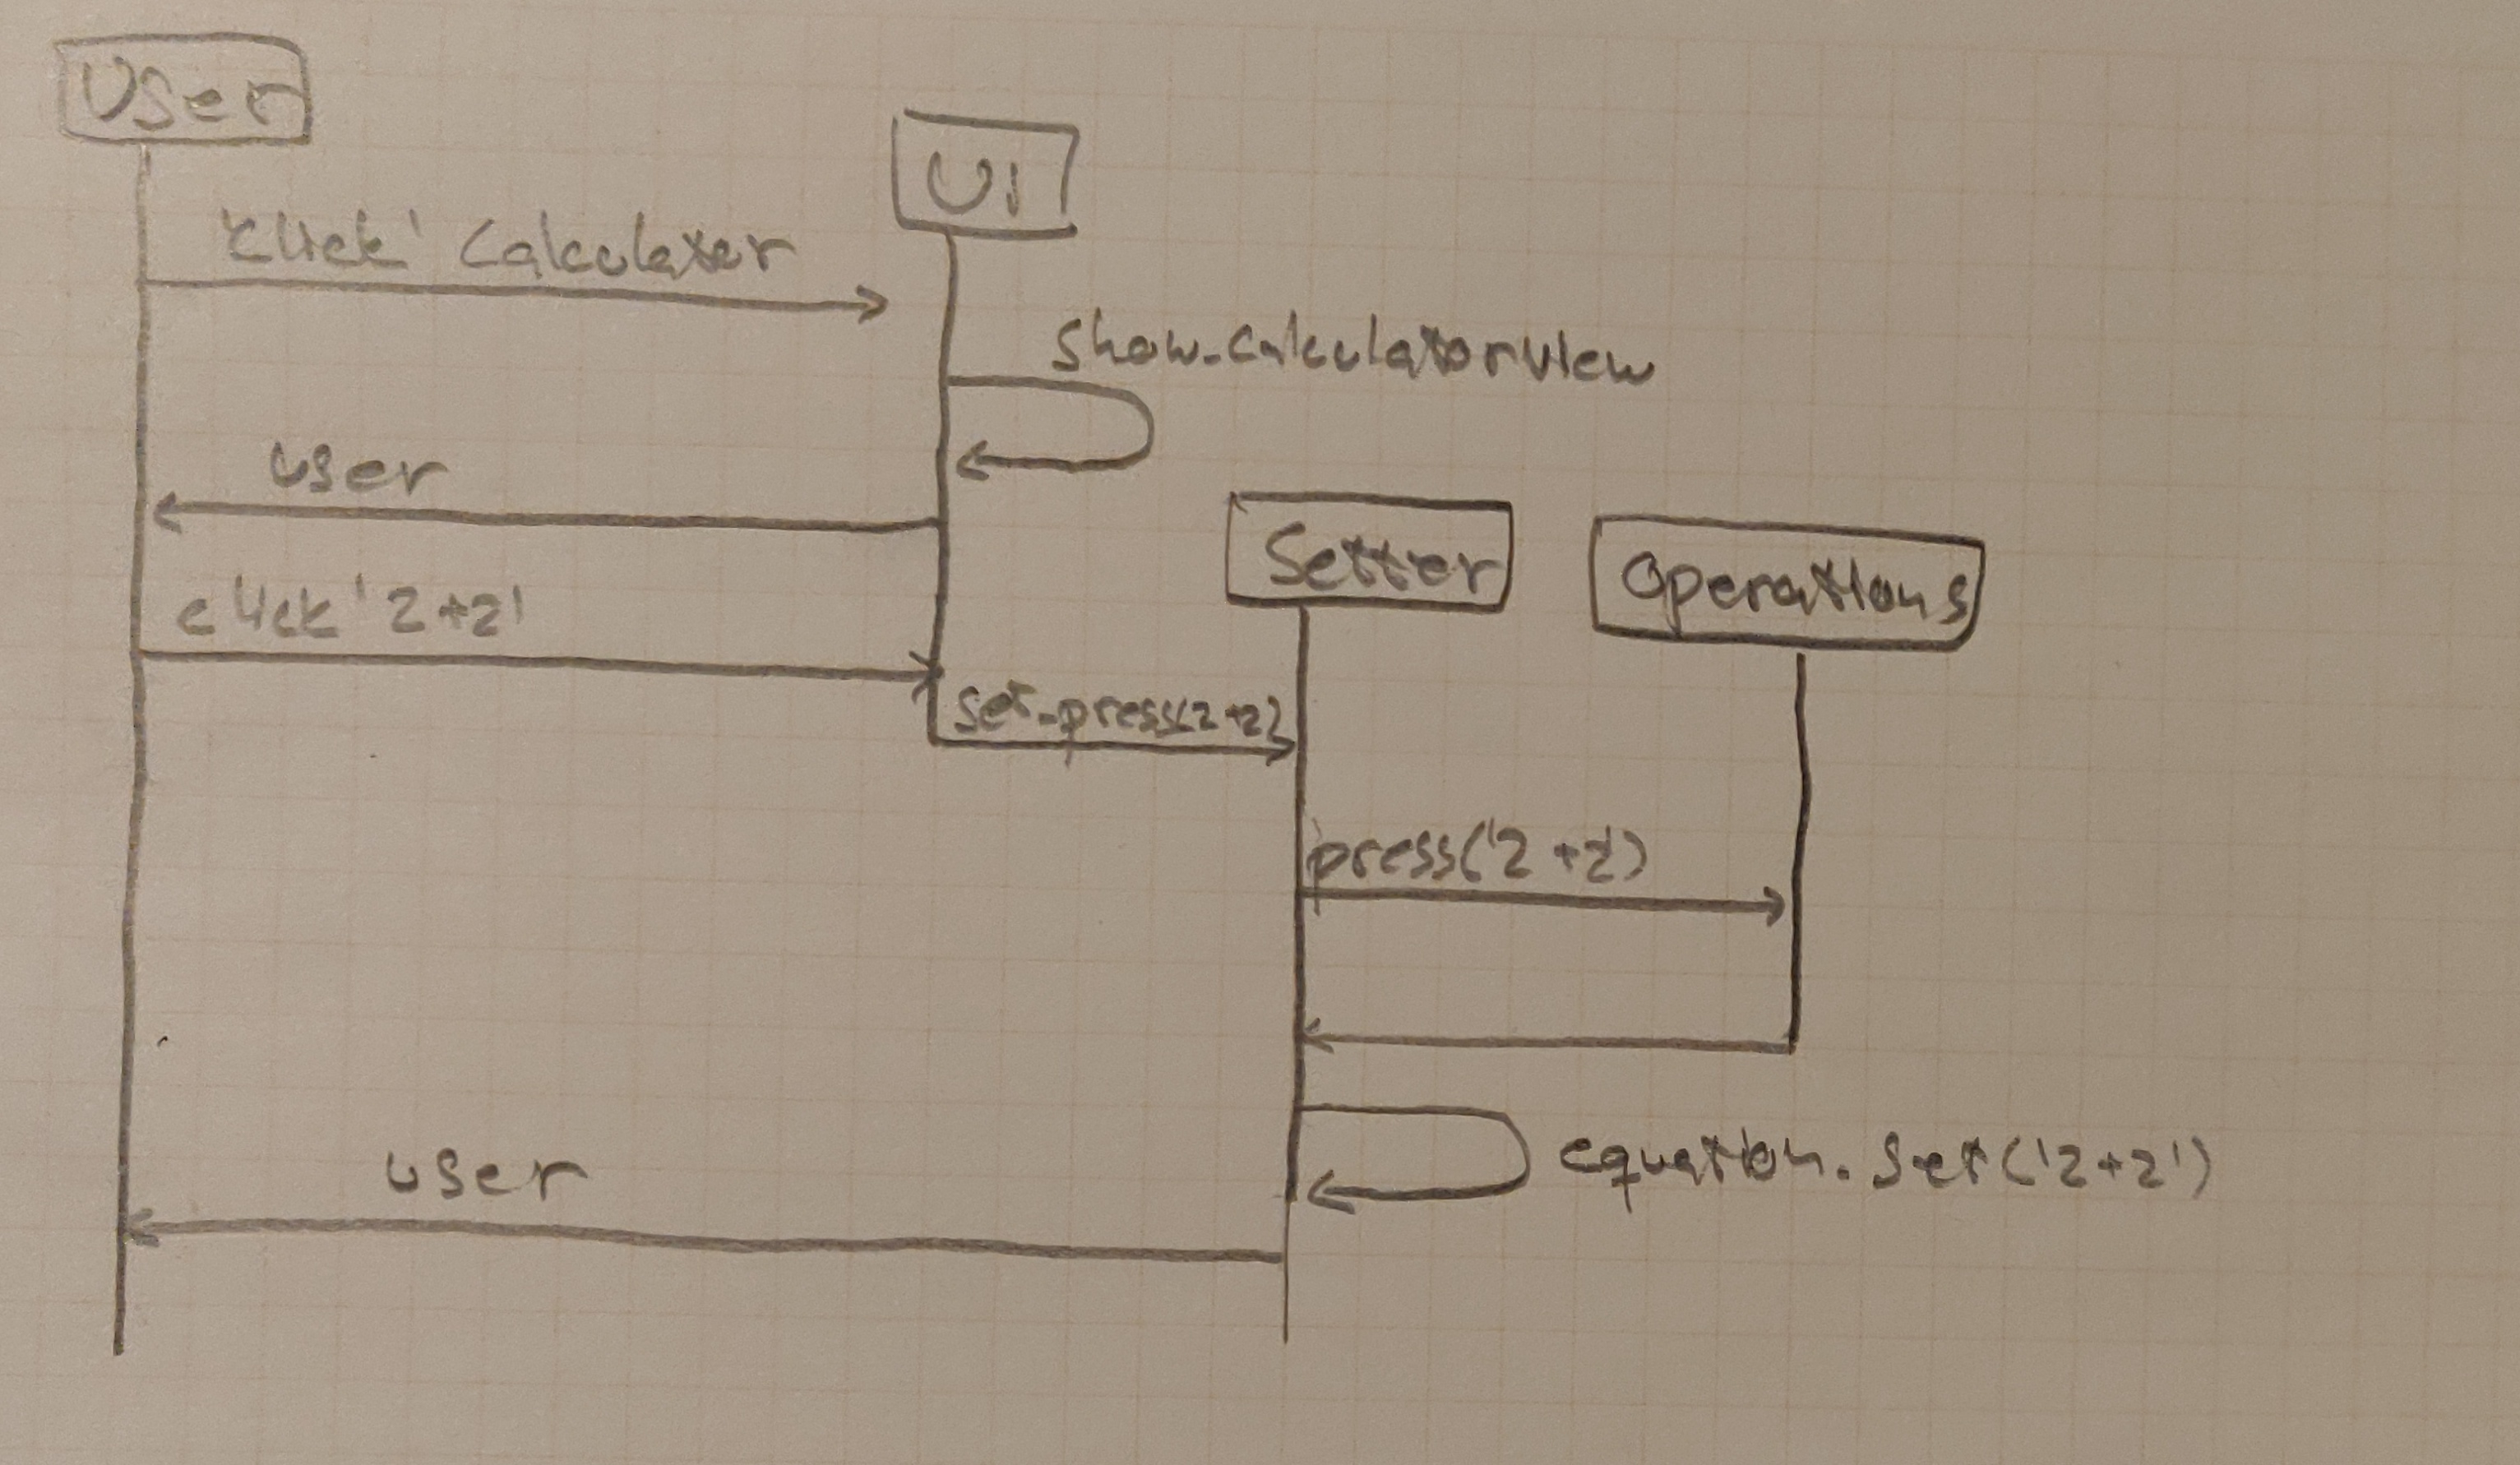 User
UI
'click' Calculator
show_calculatorview
user
Setter
Operations
click '2+2'
set_press(2+2)
press('2+2')
equation.set('2+2')
user